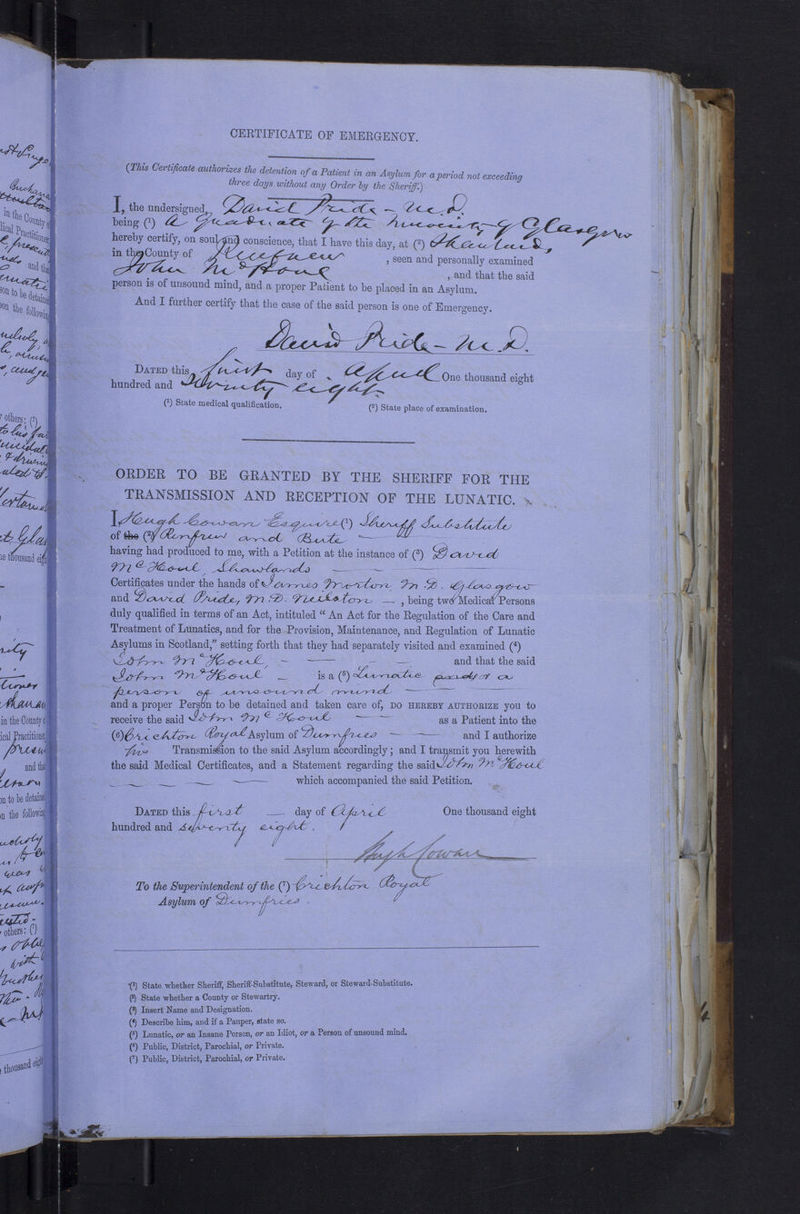 CERTIFICATE OF EMERGENCY.
(This Certificate authorizes the detention of a Patient in an Asylum for a period not exceeding
three days without any Order by the Sheriff.)
I, the undersigned, David Pride - M.D.
being (¹) a Graduate of the University of Glasgow
hereby certify, on soul and conscience, that I have this day, at (²) Shawlands,
in the County of Renfrew, seen and personally examined
John McHoul, and that the said
person is of unsound mind, and a proper Patient to be placed in an Asylum.
And I further certify that the case of the said person is one of Emergency.
David Pride - M.D.
DATED this first day of April One thousand eight
hundred and Seventy eight
(¹) State medical qualification. (²) State place of examination.
ORDER TO BE GRANTED BY THE SHERIFF FOR THE
TRANSMISSION AND RECEPTION OF THE LUNATIC.
I Hugh Cowan Esquire (¹) Sheriff Substitute
of the (²) Renfrew and Bute
having had produced to me, with a Petition at the instance of (³) David
McHoul, Shawlands
Certificates under the hands of James Morton M.D. Glasgow
and David Pride, M.D. Neilston, being two Medical Persons
duly qualified in terms of an Act, intituled “An Act for the Regulation of the Care and
Treatment of Lunatics, and for the Provision, Maintenance, and Regulation of Lunatic
Asylums in Scotland,” setting forth that they had separately visited and examined (⁴)
John McHoul, and that the said
John McHoul is a (⁵) Lunatic and/or a
person of unsound mind
and a proper Person to be detained and taken care of, DO HEREBY AUTHORIZE you to
receive the said John McHoul as a Patient into the
(⁶) Crichton Royal Asylum of Dumfries and I authorize
his Transmission to the said Asylum accordingly; and I transmit you herewith
the said Medical Certificates, and a Statement regarding the said John McHoul
which accompanied the said Petition.
DATED this first day of April One thousand eight
hundred and seventy eight.
Hugh Cowan
To the Superintendent of the (⁷) Crichton Royal
Asylum of Dumfries.
(¹) State whether Sheriff, Sheriff-Substitute, Steward, or Steward-Substitute.
(²) State whether a County or Stewartry.
(³) Insert Name and Designation.
(⁴) Describe him, and if a Pauper, state so.
(⁵) Lunatic, or an Insane Person, or an Idiot, or a Person of unsound mind.
(⁶) Public, District, Parochial, or Private.
(⁷) Public, District, Parochial, or Private.